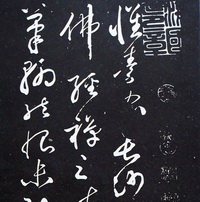 懷素家長沙
佛經禪之
筆翰然恨未